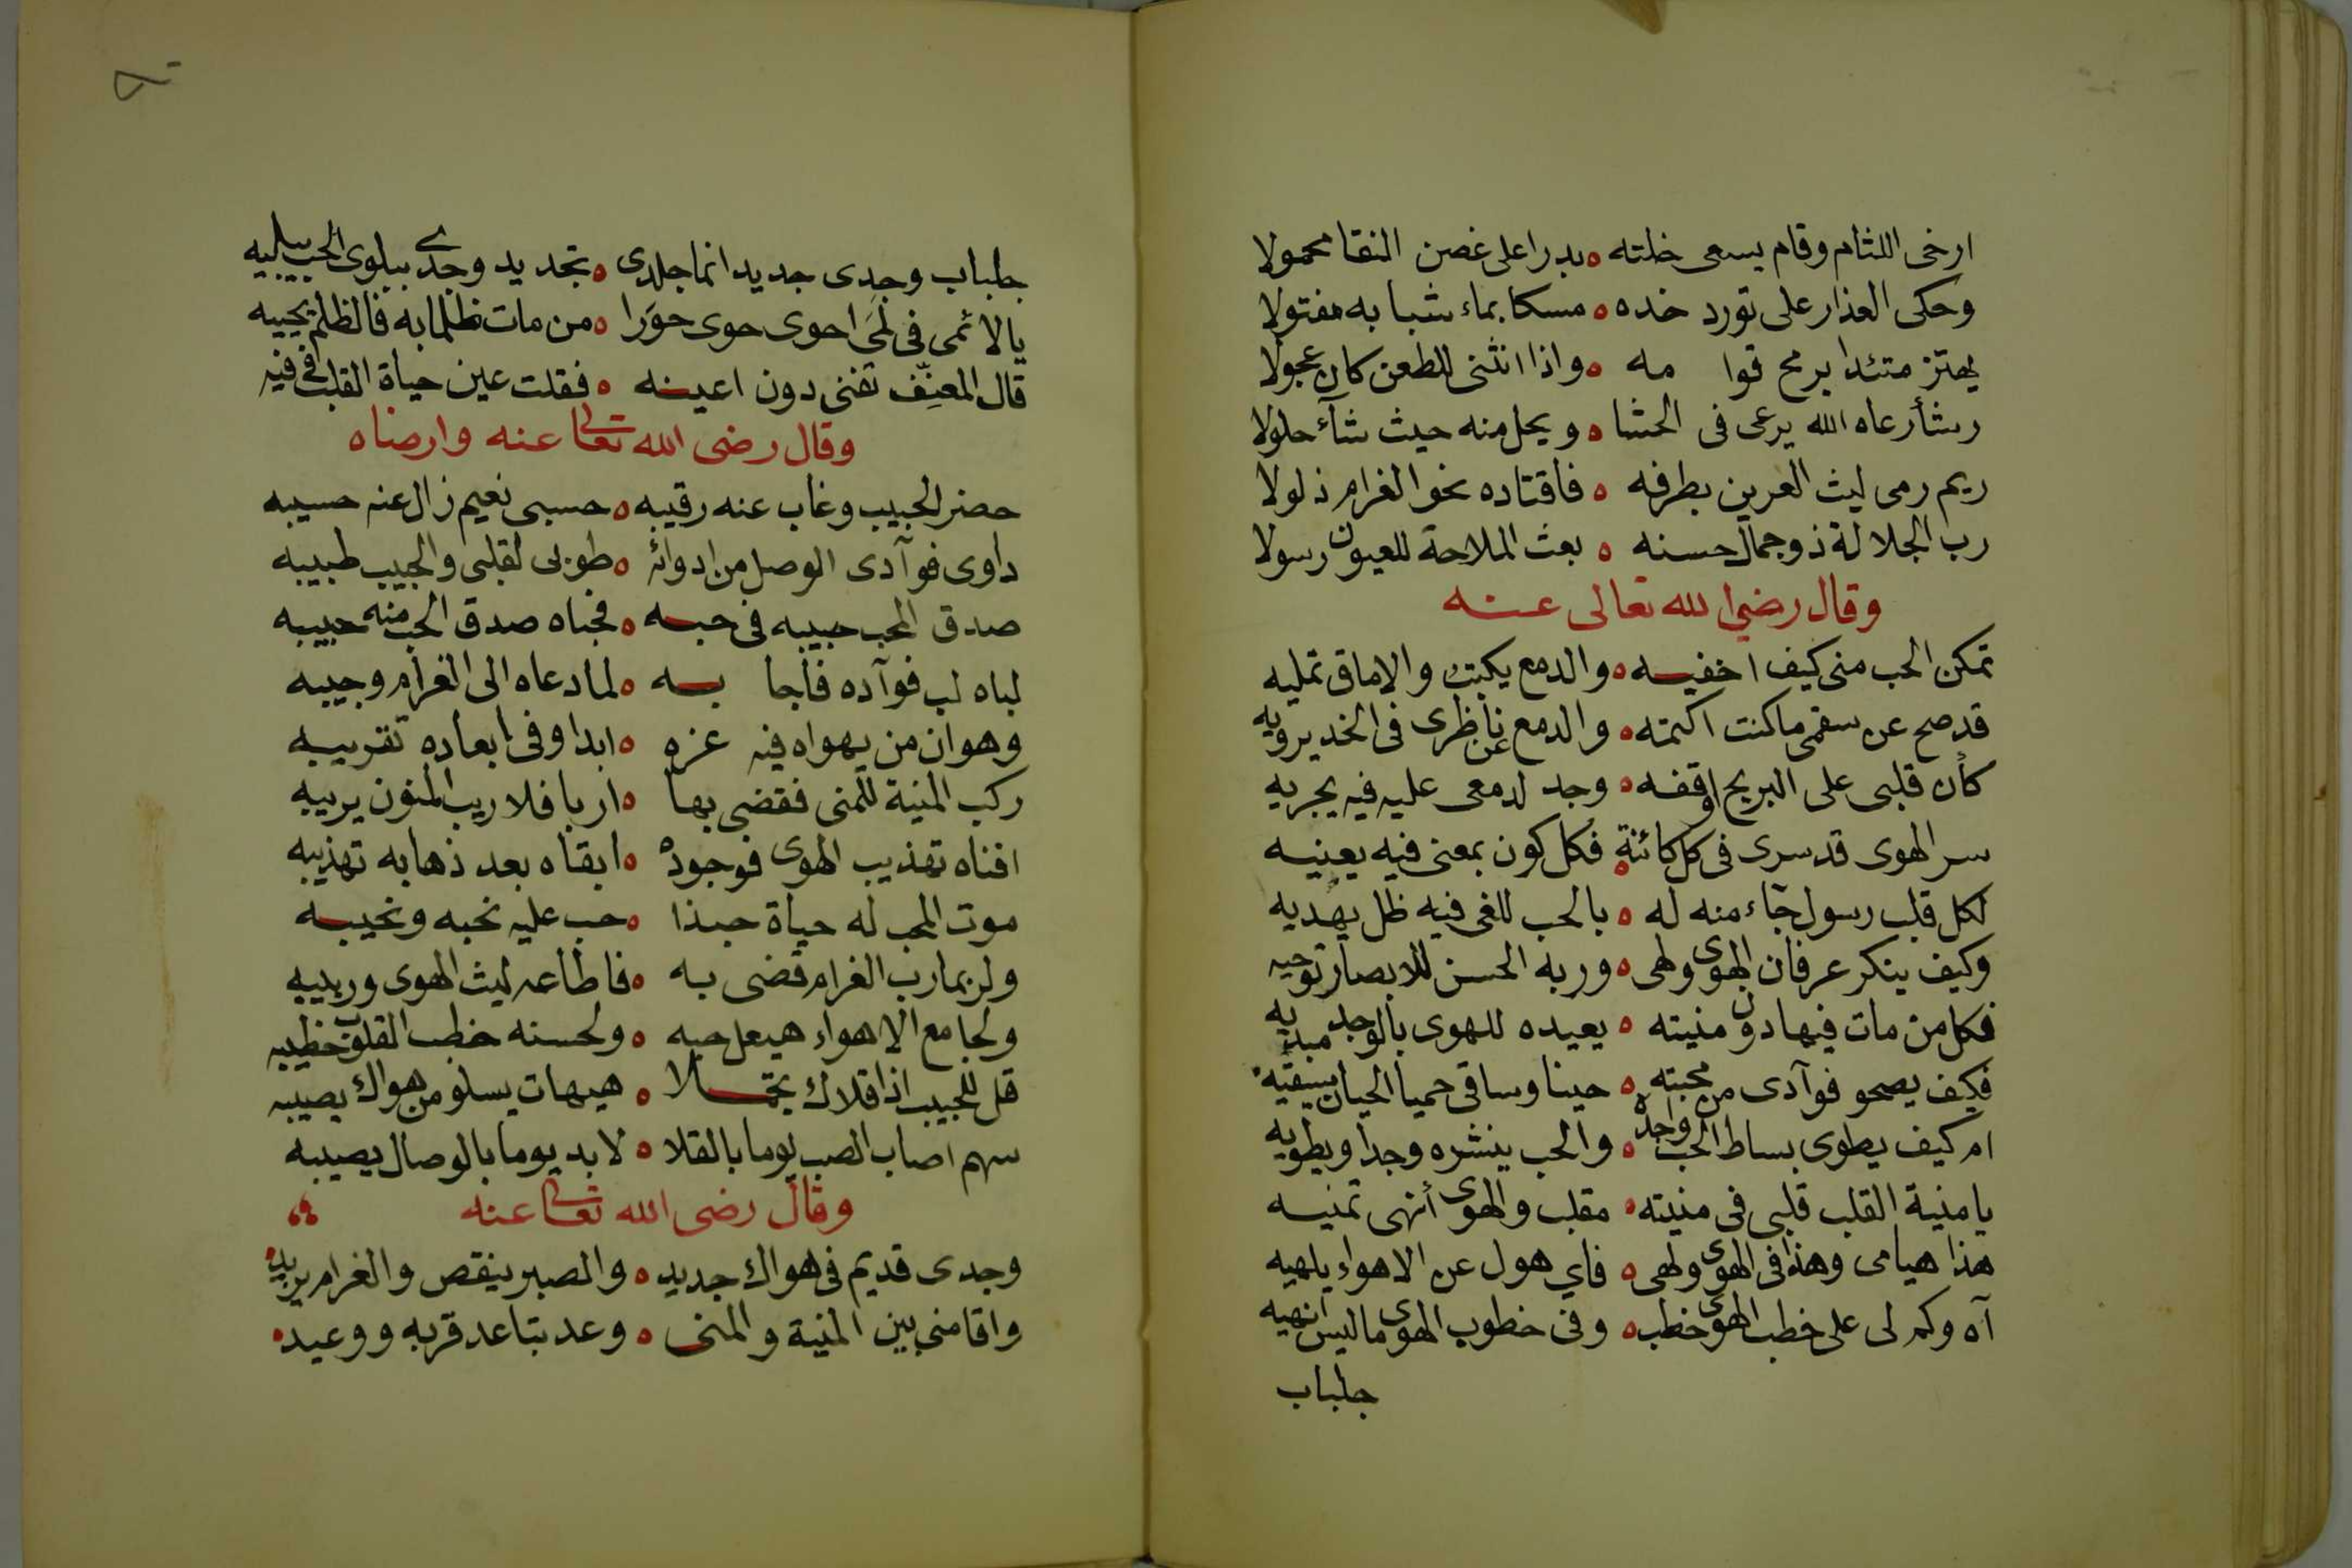 ارخى اللثام وقام يسعى خلته ه بدرا على غصن النقا محمولا
وحكى العذار على تورد خده ه مسكا بماء شبابه مفتولا
يهتز متئدا برمح قوامه ه واذا انثنى للطعن كان عجولا
رشأ رعاه الله يرعى فى الحشا ه ويحل منه حيث شآء حلولا
ريم رمى ليث العرين بطرفه ه فاقتاده نحو الغرام ذلولا
رب الجلالة ذو جمال حسنه ه بعث الملاحة للعيون رسولا
وقال رضي الله تعالى عنه
تمكن الحب منى كيف اخفيه ه والدمع يكتب والاماق تمليه
قد صح عن سقمى ما كنت اكتمه ه والدمع عن ناظرى فى الخد يرويه
كأن قلبى على البريح اوقفه ه وجد لدمعى عليه فيه يجريه
سر الهوى قد سرى فى كل كائنة ه فكل كون بمعنى فيه يعنيه
لكل قلب رسول جآء منه له ه بالحب للغى فيه ظل يهديه
وكيف ينكر عرفان الهوى ولهى ه وربه الحسن للابصار توحيه
فكل من مات فيها دون منيته ه يعيده للهوى بالوجد مبديه
فكيف يصحو فوآدى من محبته ه حينا وساقى حميا الحيان يسقيه
ام كيف يطوى بساط الحب واجده ه والحب ينشره وجدا ويطويه
يا منية القلب قلبى فى منيته ه مقلب والهوى أنهى تمنيه
هذا هيامى وهذا فى الهوى ولهى ه فاي هول عن الاهواء يلهيه
آه وكم لى على خطب الهوى خطب ه وفى خطوب الهوى ما ليس انهيه
جلباب
جلباب وجدى جديد انما جلدى ه تجديد وجدى ببلوى الحب يبليه
يا لائمى فى لمَى احوى حوى حوَرا ه من مات ظلما به فالظلم يحييه
قال المعنِّف تفنى دون اعينه ه فقلت عين حياة القلب فى فيه
وقال رضى الله تعالى عنه وارضاه
حضر الحبيب وغاب عنه رقيبه ه حسبى نعيم زال عنه حسيبه
داوى فوآدى الوصل من ادوائه ه طوبى لقلبى والحبيب طبيبه
صدق المحب حبيبه فى حبه ه فحباه صدق الحب منه حبيبه
لباه لب فوآده فأجابه ه لما دعاه الى الغرام وجيبه
وهوان من يهواه فيه عزه ه ابدا وفى ابعاده تقريبه
ركب المنية للمنى فقضى بها ه اربا فلا ريب المنون يريبه
افناه تهذيب الهوى فوجوده ه ابقاه بعد ذهابه تهذيبه
موت المحب له حياة حبذا ه حب عليه نحبه ونحيبه
ولربما رب الغرام قضى به ه فاطاعه ليث الهوى وربيبه
ولجامع الاهواء هيعل حبه ه ولحسنه خطب القلوب خطيبه
قل للحبيب اذا قلاك تجملا ه هيهات يسلو من هواك يصيبه
سهم اصاب الصب يوما بالقلا ه لا بد يوما بالوصال يصيبه
وقال رضى الله تعالى عنه
وجدى قديم فى هواك جديد ه والصبر ينقص والغرام يزيد
واقامنى بين المنية والمنى ه وعد بتاعد قربه ووعيد